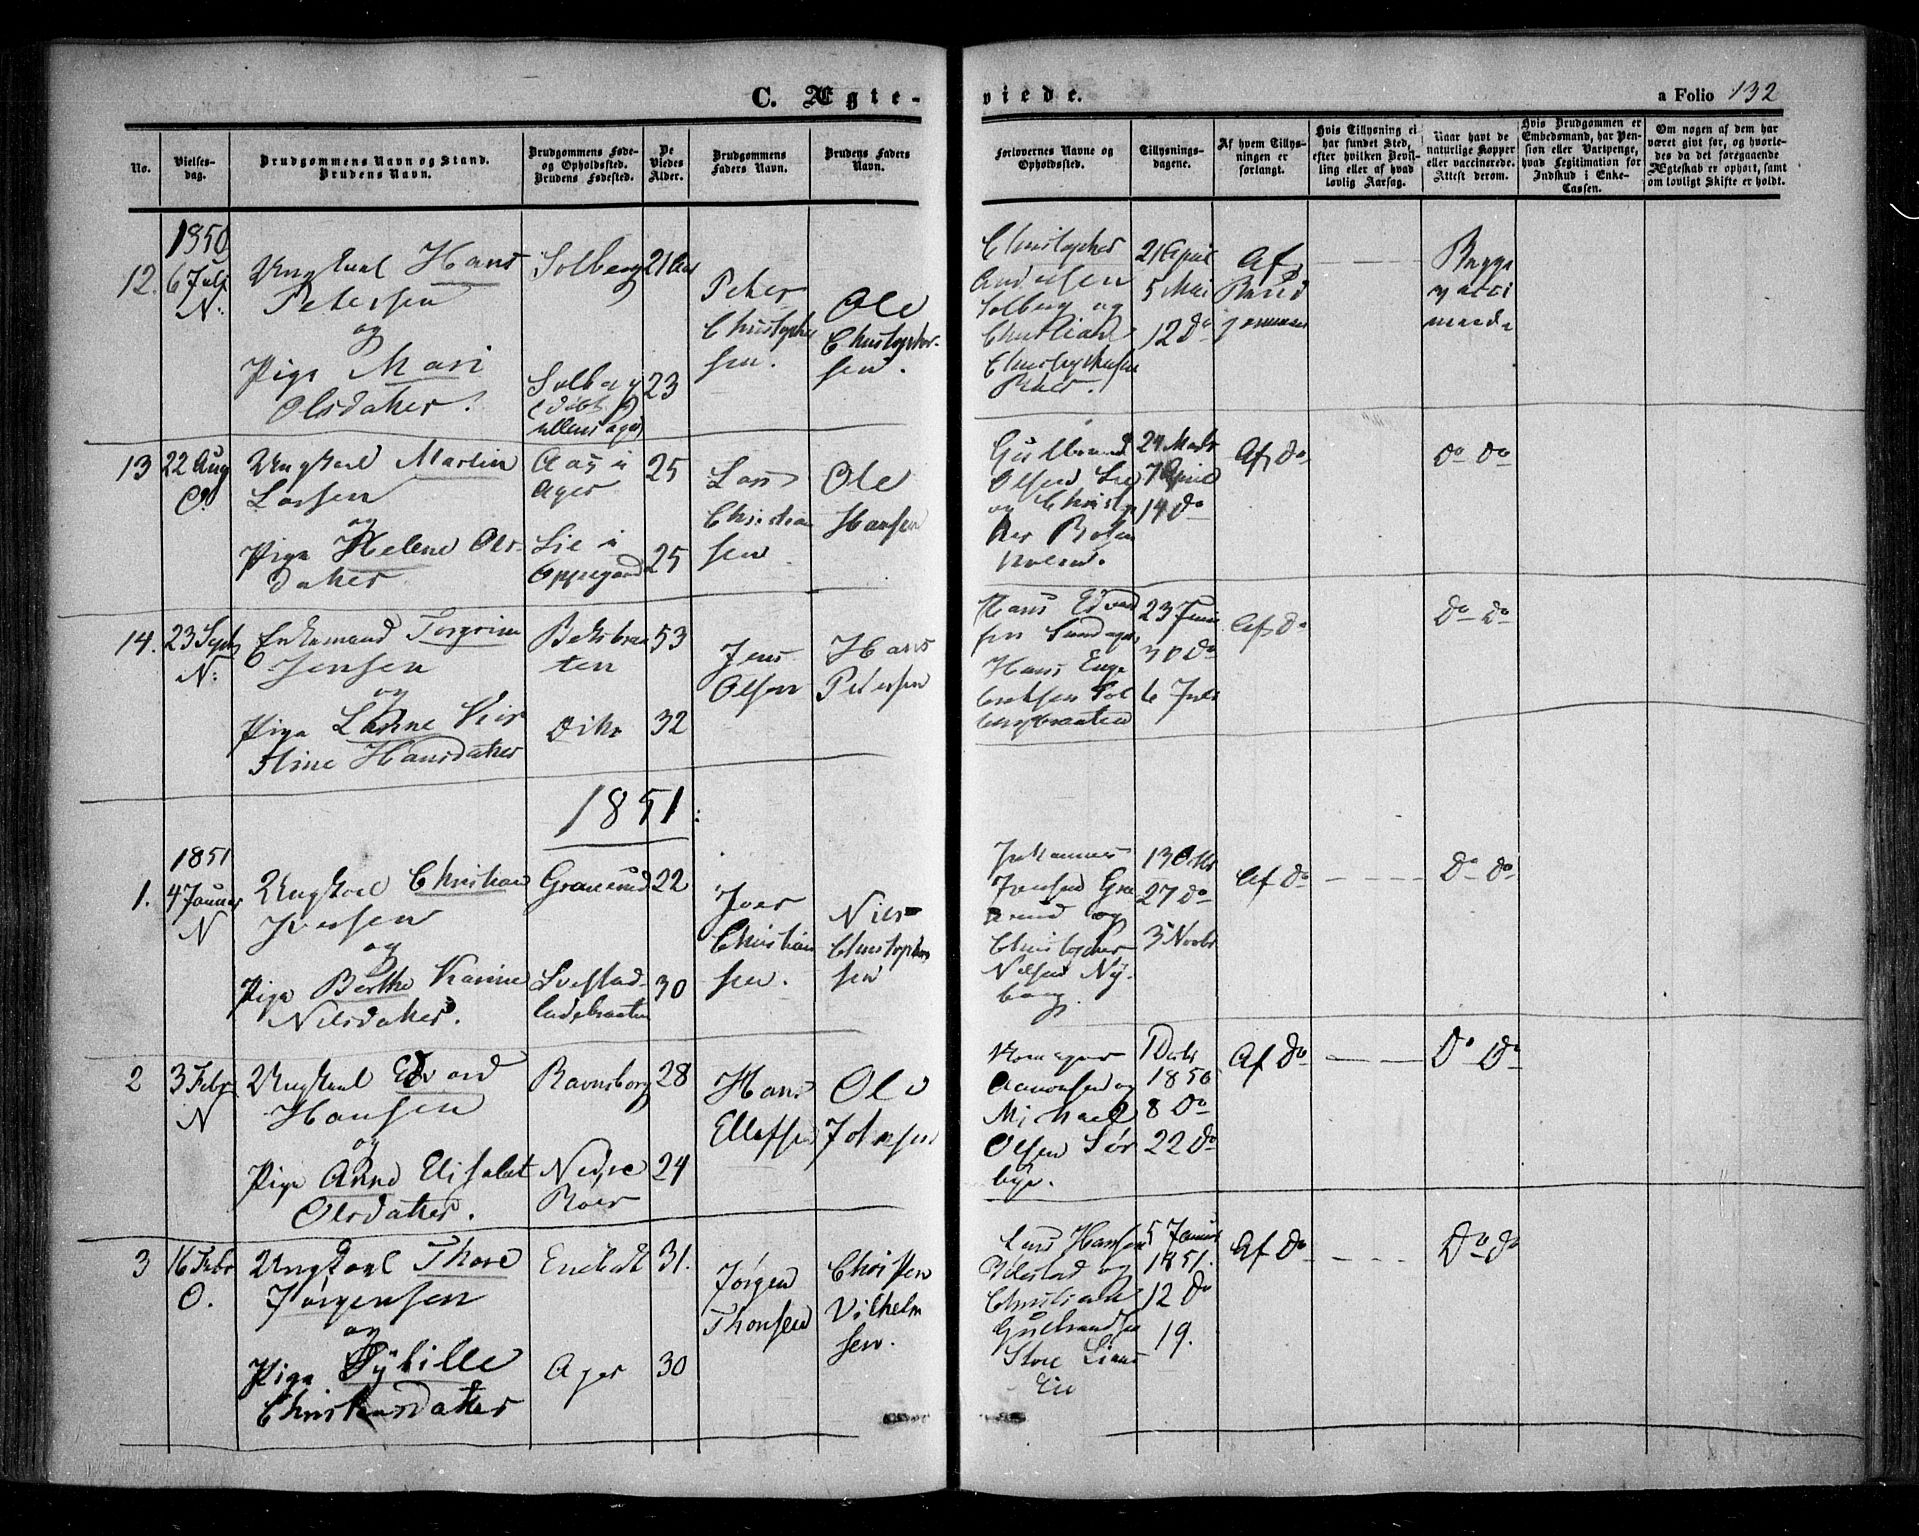 C. Ægte-
viede.
a Folio 132
No.
Vielses-
dag.
Brudgommens Navn og Stand.
Brudens Navn.
Brudgommens Føde-
og Opholdssted.
Brudens Fødested.
De
Viedes
Alder.
Brudgommens
Faders Navn.
Brudens Faders
Navn.
Forlovernes Navne og
Opholdssted.
Tillysnings-
dagene.
Af hvem Tillys-
ningen er
forlangt.
Hvis Tillysning ei
har fundet Sted,
efter hvilken Bevil-
ling eller af hvad
lovlig Aarsag.
Naar havt de
naturlige Kopper
eller vaccinerede.
Attest derom.
Hvis Brudgommen er
Embedsmand, har Pen-
sion eller Vartpenge,
hvad Legitimation for
Indskud i Enke-
Cassen.
Om nogen af dem har
været givt før, og hvorle-
des da det foregaaende
Ægteskab er ophørt, samt
om lovligt Skifte er holdt.
12.
1850
6 Juli
N.
Ungkarl Hans
Petersen
og
Pige Mari
Olsdatter.
Solberg
Solberg
(født i
Ullensager)
21 Aar
23
Peter
Christopher
sen.
Ole
Christopher-
sen.
Christopher
Andersen
Solberg og
Christian
21 April
5 Mai
12 do
Af
Brud
gommen
Begge
vacci
nerede
13
22 Aug
O.
Ungkarl Martin
Larsen
og
Pige Helene Ols-
datter
Aas i
Ager
Lie i
Oppegaard
25
25
Lars
Christian
sen
Ole
Hansen
Gulbrand
Olsen Lie
og Christop
her
24 Marts
7 April
14 do
Af do
do do
14.
23 Sept
N.
Enkemand Torgrim
Jensen
og
Pige Larine Kir
stine Hansdatter
Beksbraa
ten
Dito
53
32
Jens
Olsen
Hans
Petersen
Hans Edvard
sen
Hans
23 Juni
30 do
6 Juli
Af do
do do
1851.
1.
1851
4 Januar
N
Ungkarl Christian
Iversen
og
Pige Berthe Karine
Nilsdatter.
Granerud
Svestad-
22
30
Iver
Christian
sen.
Nils
Christopher
sen
Johannes
Iversen Gra
nerud og
Christopher
Nilsen Ny-
borg
13 Octbr
27 do
3 Novbr
Af do
Do do
2
3 Febr
N
Ungkarl Edvard
Hansen
og
Pige Anne Elisabet
Olsdatter.
Ravnsborg
Nedre
Roer
28
24
Hans
Ellefsen
Ole
Johnsen
Aamonsen og
Michael
Olsen Sør
bye.
1 Decbr
1850
8 Do
22 do
Af do
Do Do
3
16 Febr
O.
Ungkarl Thore
Jørgensen
og
Pige Sybille
Christensdatter
Enebak
Ager
31.
30
Jørgen
Thorsen
Christen
Vilhelm
sen.
Lars Hansen
og
Christian
Gulbrandsen
Store
5 Januar
1851.
12 Do
19.
Af Do
Do do